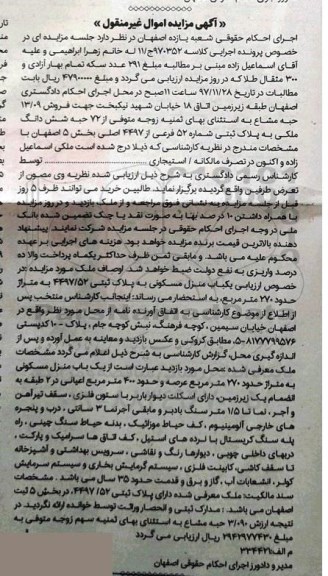 « آگهی مزایده اموال غیرمنقول »
اجرای احکام حقوقی شعبه یازده اصفهان در نظر دارد جلسه مزایده ای در
خصوص پرونده اجرایی کلاسه ۹۷۰۳۵۲ج/۱۱ له خانم زهرا ابراهیمی و علیه
آقای اسماعیل زاده مبنی بر مطالبه مبلغ ۲۹۱ عدد سکه تمام بهار آزادی و
۳۰۰ مثقال طلا که در روز مزایده ارزیابی می گردد و مبلغ ۴۷۹۰۰۰۰۰ ریال بابت
مطالبات در تاریخ ۹۷/۱۱/۲۸ ساعت ۱۱صبح در محل اجرای احکام دادگستری
اصفهان طبقه زیرزمین اتاق ۱۸ خیابان شهید نیکبخت جهت فروش ۱۳/۰۹
حبه مشاع به استثنای بهای ثمنیه زوجه متوفی از ۷۲ حبه شش دانگ
ملکی به پلاک ثبتی شماره ۵۲ فرعی از ۴۴۹۷ اصلی بخش ۵ اصفهان با
مشخصات مندرج در نظریه کارشناسی که ذیلا درج شده است ملکی اسماعیل
زاده و اکنون در تصرف مالکانه / استیجاری .................... توسط
کارشناس رسمی دادگستری به شرح ذیل ارزیابی شده نظریه وی مصون از
تعرض طرفین واقع گردیده برگزار نماید. طالبین خرید می توانند ظرف ۵ روز
قبل از جلسه مزایده به نشانی فوق مراجعه و از ملک بازدید و در روز مزایده
با همراه داشتن ۱۰ در صد بها به صورت نقد یا چک تضمین شده بانک
ملی در وجه اجرای احکام حقوقی در جلسه مزایده شرکت نمایند. پیشنهاد
دهنده بالاترین قیمت برنده مزایده خواهد بود. هزینه های اجرایی بر عهده
محکوم علیه می باشد. و مابقی ثمن ظرف حداکثر یکماه پرداخت والا ده
درصد واریزی به نفع دولت ضبط خواهد شد. اوصاف ملک مورد مزایده :در
خصوص ارزیابی یکباب منزل مسکونی به پلاک ثبتی ۴۴۹۷/۵۲ به متراژ
حدود ۲۷۰ متر مربع، به استحضار می رساند: اینجانب کارشناس منتخب پس
از اطلاع از موضوع کارشناسی به اتفاق آورنده نامه از محل مورد نظر واقع در
اصفهان خیابان سیمین ، کوچه فرهنگ، نبش کوچه جام ، پلاک ۱۰۰ کدپستی
۸۱۷۷۷۹۹۵۷۶-۵، مطابق کروکی و عکس بازدید و معاینه به عمل آورده و پس از
اندازه گیری محل، گزارش کارشناسی به شرح ذیل اعلام می گردد مشخصات
ملک معرفی شده :محل مورد بازدید عبارت است از یک باب منزل مسکونی
به متراژ حدود ۲۷۰ متر مربع عرصه و حدود ۴۰۰ متر مربع اعیانی در ۲ طبقه به
انضمام یک زیرزمین، دارای اسکلت دیوار باربر با ستون فلزی ، سقف تیرآهن
و آجر ، نما تا ۱/۵ متر سنگ بادبر و مابقی آجرنما ۳ سانتی ، درب و پنجره
های خارجی آلومینیوم ، کف حیاط موزائیک ، بدنه حیاط سنگ چینی ، راه
پله سنگ کریستال با نرده های استیل ، کف اتاق ها سرامیک و پارکت ،
دربهای داخلی چوبی ، دیوارها رنگ و نقاشی ، سرویس بهداشتی و آشپزخانه
تا سقف کاشی، کابینت فلزی ، سیستم گرمایش بخاری و سیستم سرمایش
کولر ، انشعابات آب ، گاز و برق و قدمت حدود ۳۵ سال می باشد . مشخصات
سند مالکیت: ملک معرفی شده دارای پلاک ثبتی ۴۴۹۷/۵۲ ، در بخش ۵ ثبت
اصفهان می باشد . : مدارک ثبتی و انحصار وراثت توسط خوانده ارائه نگردید. در
نتیجه ارزش ۳/۰۹ حبه مشاع به استثنای بهای ثمنیه سهم زوجه متوفی به
مبلغ ۲۹۴۲۹۷۷۴۳۰ ریال ارزیابی می گردد
م الف:۳۳۴۴۲۱
مدیر و دادورز اجرای احکام حقوقی اصفهان